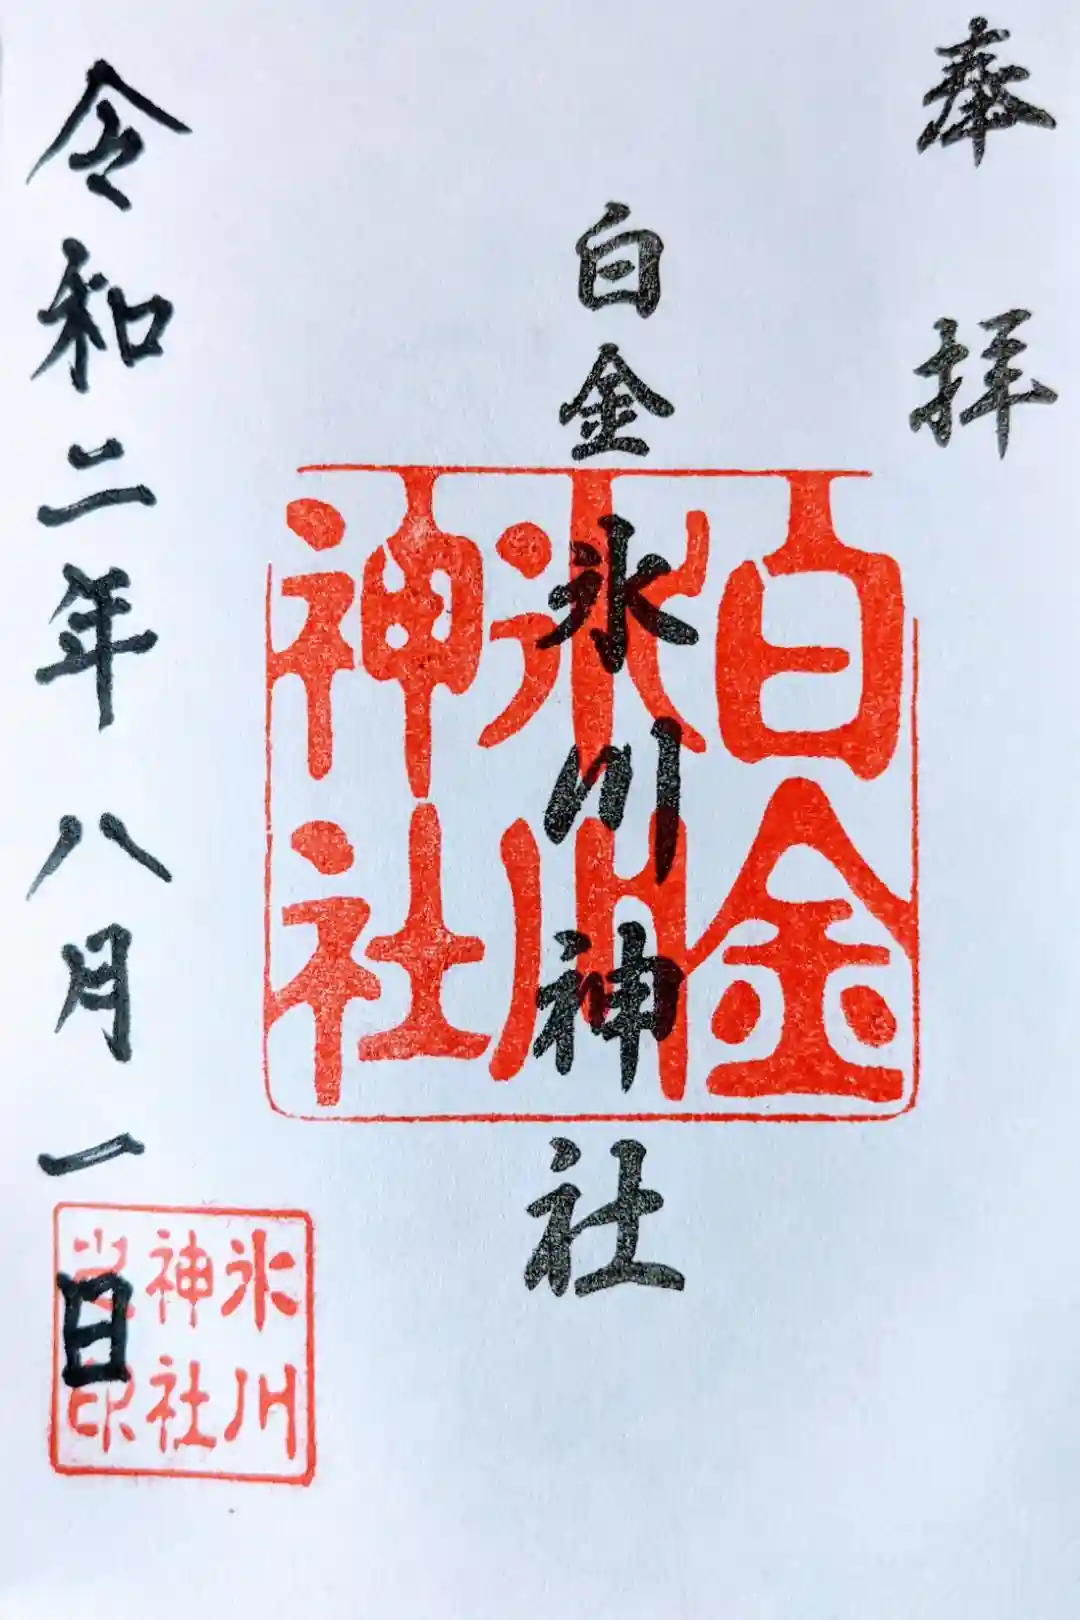 奉拝
白金氷川神社
白金
氷川
神社
令和二年八月一日
氷川
神社
印